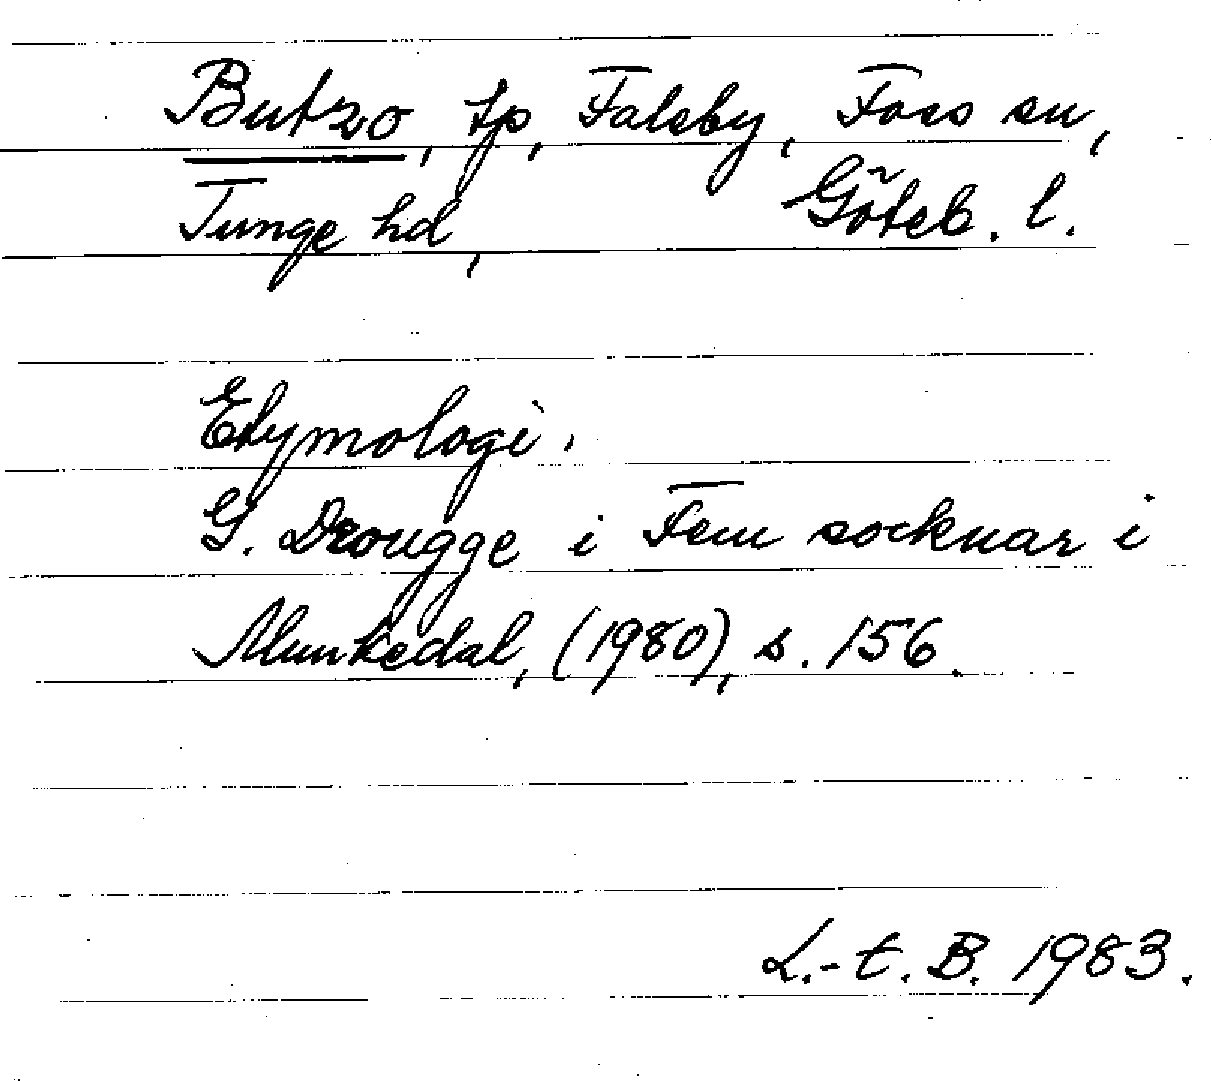 Butzo, tp, Faleby, Foss sn,
Tunge hd, Göteb. l.
Etymologi.
G. Drougge i Fem socknar i
Munkedal, (1980), s. 156.
L.-t. B. 1983.